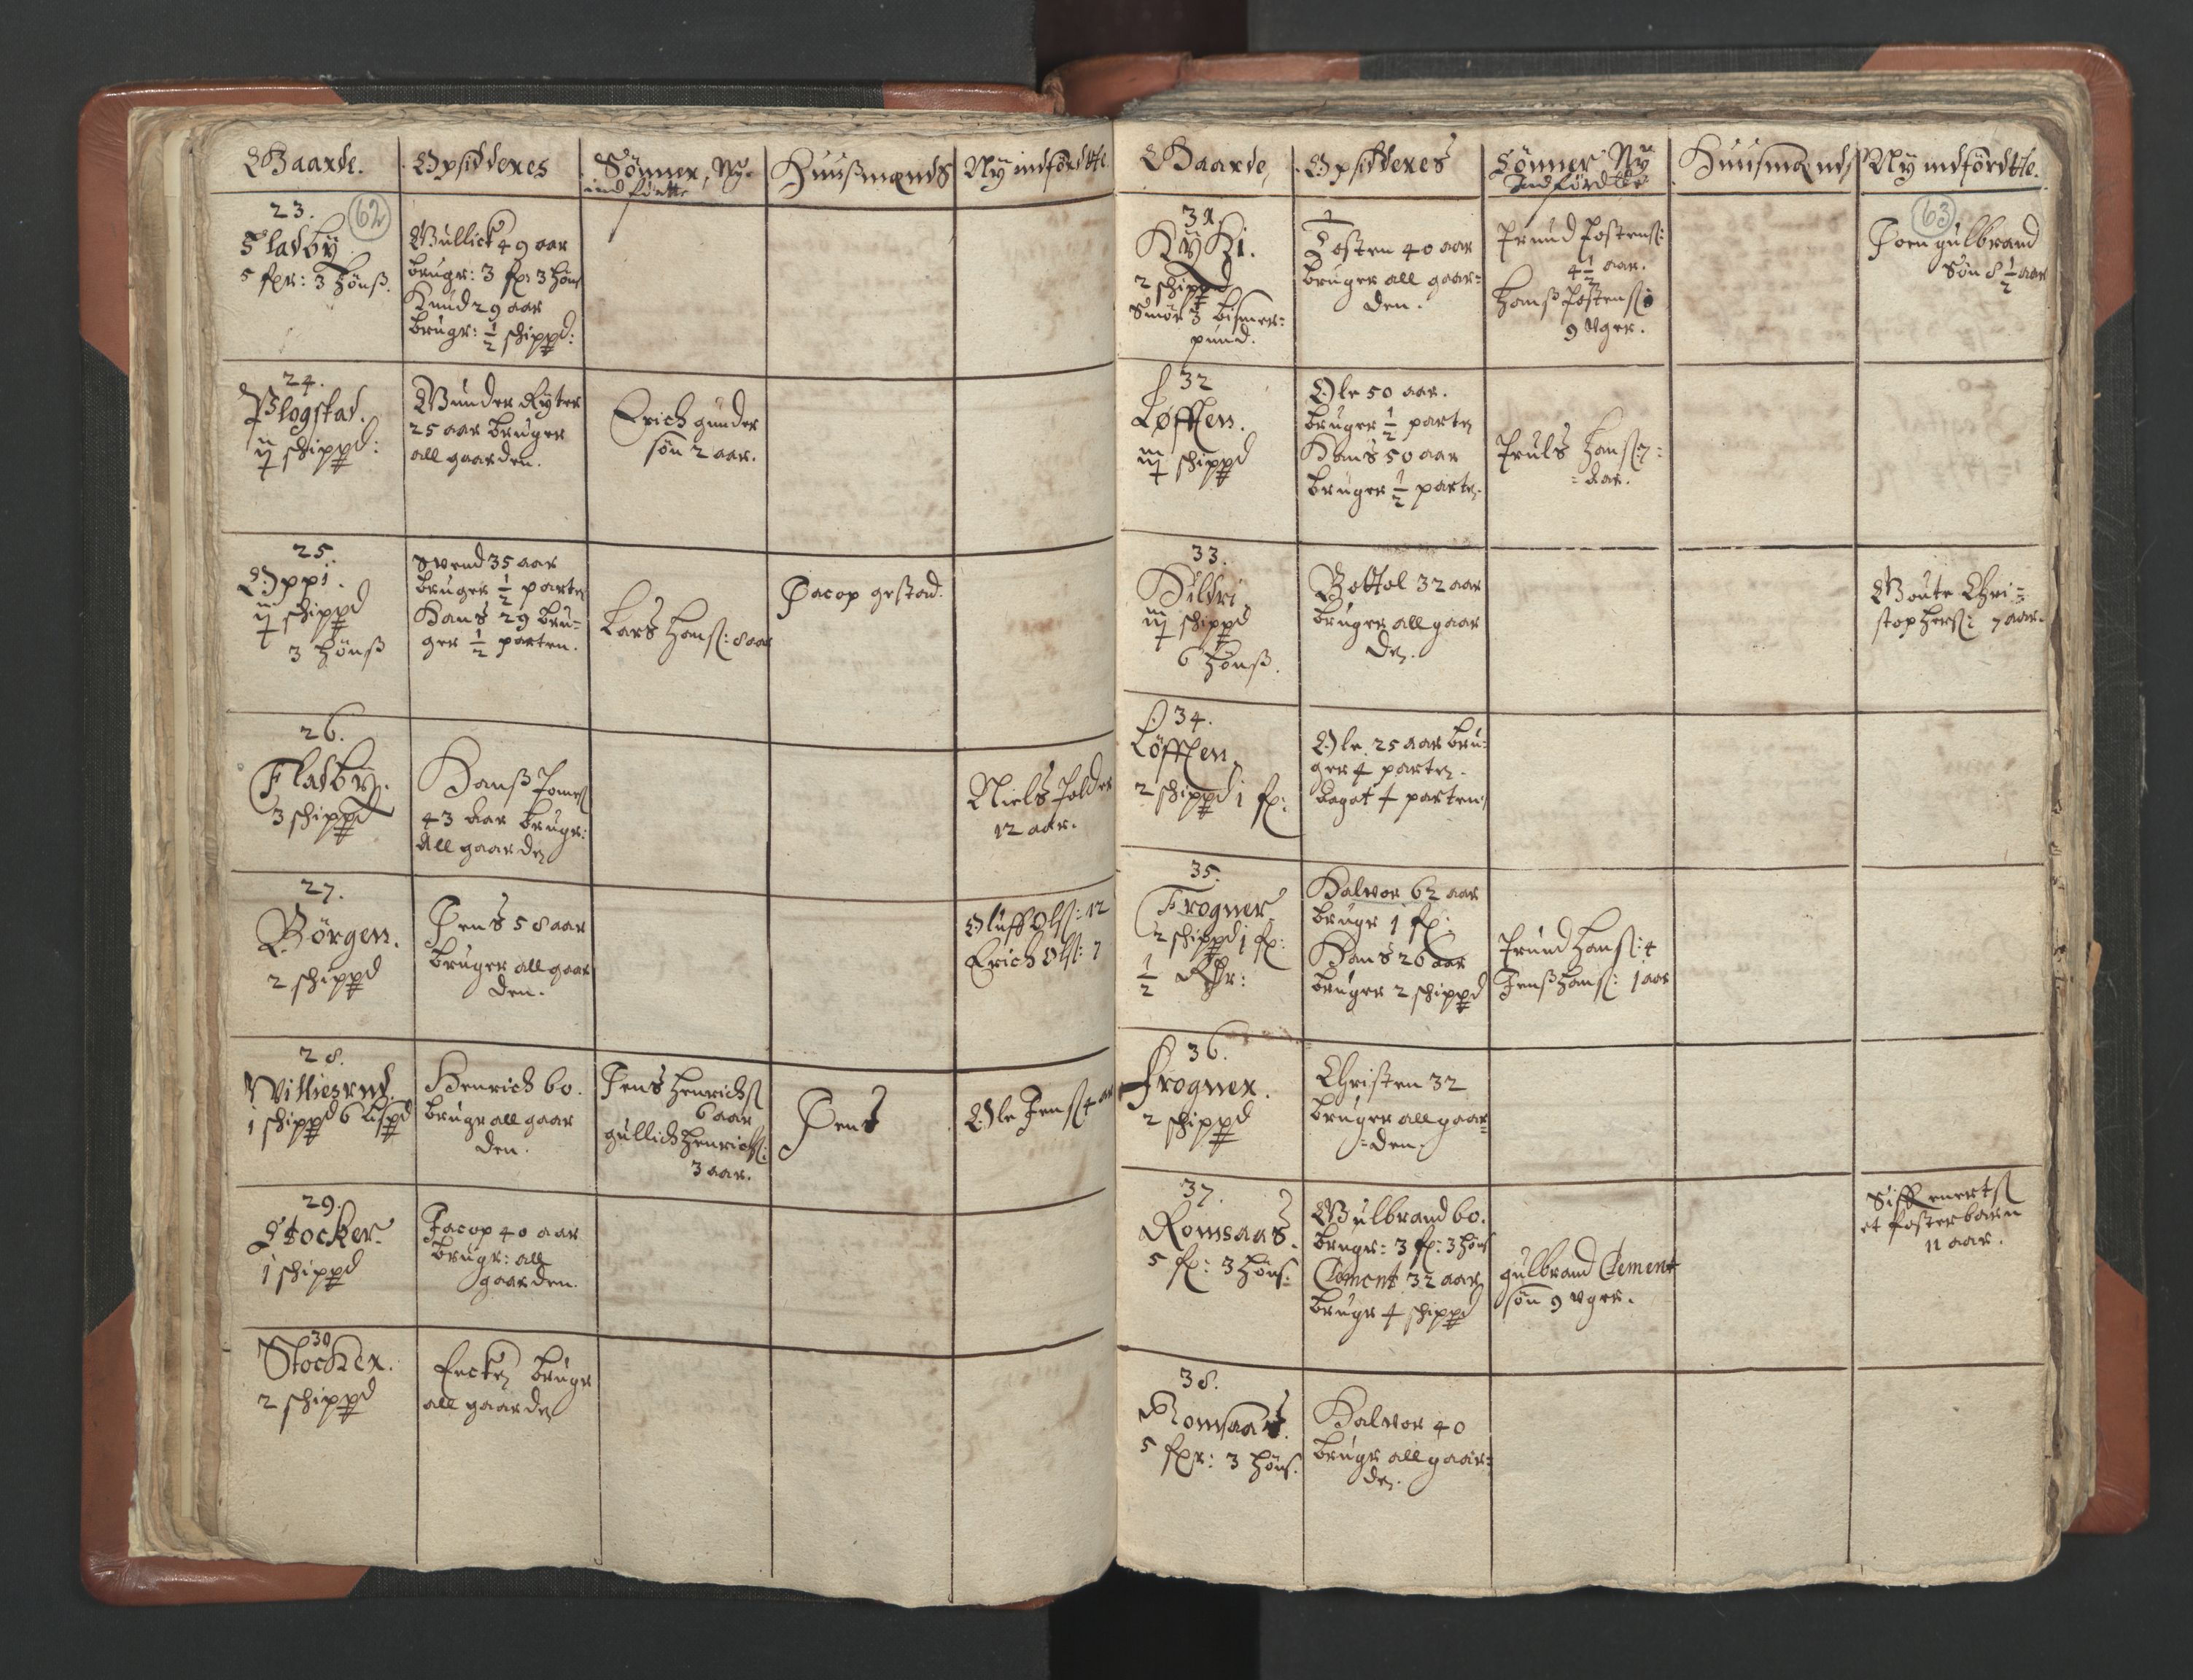 Gaarde.
Opsidderes
Sønner, Ny-
indførtte
Huußmends
Ny indfördtte
62
23.
Fladby
5 fr: 3 hönß.
Gullich 49 aar
bruger: 3 fr: 3 höns
Knud 29 aar
brugr: 1/2 schippd:
24.
Plogstad.
ij schippd:
Gunder Ryter
25 aar bruger
all gaarden.
Erich gunder
søn 2 aar.
25.
Oppi.
ij schippd
3 hönß
Svend 35 aar
bruger 1/2 parten
Hans 29 bru-
ger 1/2 parten.
Lars Hanß: 8 aar
Jacop gestad.
26.
Fladby.
3 schippd
Hanß
43 Aar brugr:
All gaarden
Niels
12 aar.
27.
Börgen.
2 schippd
Jens 58 aar
bruger all gaar
den.
Oluff Olß: 12
Erich Olß: 7
28.
Williesrud.
1 schippd 6 lispd
Henrich 60.
brugr all gaar
den.
Jens Henrichß
6 aar
gullich Henrichß:
3 aar.
Jens
Ole Jenß 4 aar
29.
Stocker
1 schippd
Jacop 40 aar
brugr: all
gaarden.
30
Stocker.
2 schippd
brugr
all gaarden
Gaarde,
Opsidderes
Sönner Ny
Indfördtte
Huusmends
Ny indfördtte.
63
31.
Kyki.
2 schippd
Smör 3 bismer-
pund.
Tosten 40 aar
bruger all gaar-
den.
Trund Tostenß:
4 1/2 aar.
Hanß Tostenß:
9 vger.
Joen gulbrand
Søn 8 1/2 aar
32
Løffsen.
iij schippd
Ole 50 aar.
bruger 1/2 parten
Hans 50 aar
bruger 1/2 parten.
Truls Hanß 7=
=Aar.
33.
Hildri
iij schippd
6 hönß.
Bottol 32 aar
bruger all gaar
den.
Goute Chri=
stophersß: 7 aar.
34.
Løffsen
2 schippd 1 fr:
Ole 25 aar bru-
ger parten.
parten
35.
Frogner
2 schippd 1 fr:
1/2
Halvor 62 aar
brugr 1 fr:
Hans 26 aar
bruger 2 schippd
Trund Hanß: 4
Jenß Hanß: 1 aar
36.
Frogner.
2 schippd
Christen 32
bruger all gaar=
=den.
37.
Romsaas.
5 fr: 3 hönß:
Gulbrand 60.
brugr: 3 fr: 3 höns
Clement 32 aar
brugr 4 schippd
gulbrand Clement
søn 9 vger.
et fosterbarn
11 aar.
38.
Romsaas.
5 fr: 3 hönß.
Halvor 40
brugr all gaar=
den.